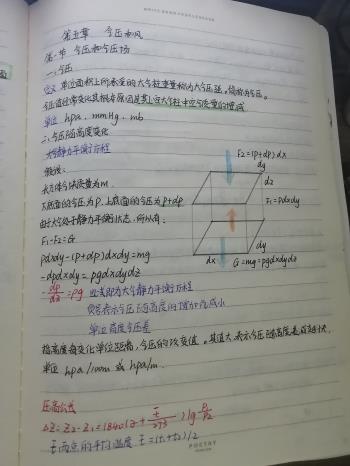 第五章 气压和风
第一节 气压和气压场
一、气压
定义 单位面积上所承受的大气柱重量称为大气压强。简称为气压。
气压值经常变化其根本原因是其上空大气柱中空气质量的增减
单位 hpa、mmHg、mb
二、气压随高度变化
大气静力平衡方程
假设:
长方体气块质量为m.
下底面的气压为p.上底面的气压为p+dp
由于大气处于静力平衡状态.所以有:
F₁-F₂=G
pdxdy-(p+dp)dxdy=mg
-dpdxdy=ρgdxdydz
-dp/dz=ρg 此式即为大气静力平衡方程
负号表示气压随高度的增加而减小
F₂=(p+dp)dx
dy
dz
F₁=pdxdy
dy
dx
G=mg=ρgdxdydz
单位高度气压差
指高度每变化单位距离,气压的改变值。其值大,表示气压随高度差减少快.
单位 hpa/100m 或 hpa/m.
压高公式
ΔZ=Z₂-Z₁=18400(1+t̄/273)lg P₁/P₂
t̄两点的平均温度 t̄=(t₁+t₂)/2